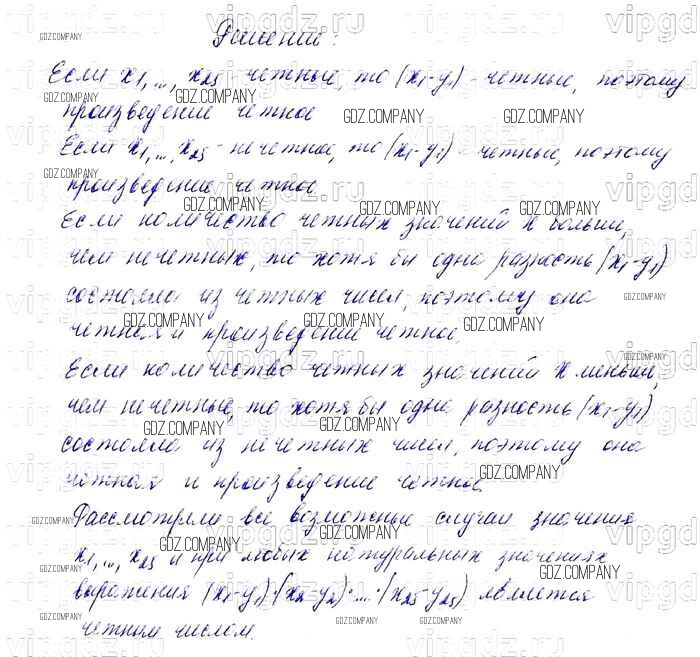 Решение:
Если x1,..., x25 - четные, то (x1-y1) - четные, поэтому
произведение четное
Если x1,..., x25 - нечетное, то (x1-y1) - четные, поэтому
произведение четное.
Если количество четных значений x больше,
чем нечетных, то хотя бы одна разность (x1-y1)
состояла из четных чисел, поэтому она
четная и произведение четное.
Если количество четных значений x меньше,
чем нечетные, то хотя бы одна разность (x1-y1)
состояла из нечетных чисел, поэтому она
четная и произведение четное.
Рассмотрели все возможные случаи значения
x1,..., x25 и при любых натуральных значениях
выражения (x1-y1)·(x2-y2)·...·(x25-y25) является
четным числом.